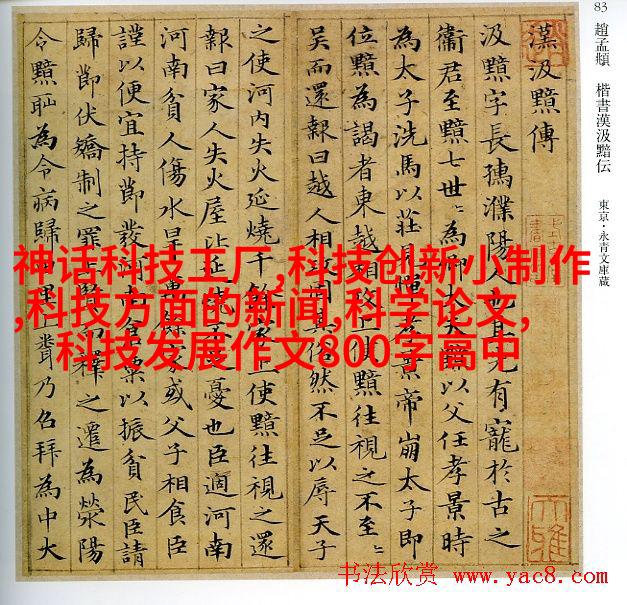 83
趙孟頫 楷書漢汲黯伝 東京・永青文庫蔵
漢汲黯傳
汲黯字長孺濮陽人也其先有寵於古之
衛君至黯七世〻為卿大夫黯以父任孝景時
為太子洗馬以莊見憚孝景帝崩太子即
位黯為謁者東越相攻上使黯往視之不至〻
吳而還報曰越人相攻固其俗然不足以辱天子
之使河內失火延燒千餘家上使黯往視之還
報曰家人失火屋比延燒不足憂也臣適河南
河南貧人傷水旱萬餘家或父子相食臣
謹以便宜持節發河南倉粟以振貧民臣請
歸節伏矯制之罪上賢而釋之遷為滎陽
令黯恥為令病歸田里上聞乃召拜為中大
神话科技工厂,科技创新小制作
,科技方面的新闻,科学论文,
科技发展作文800字高中
书法欣赏 www.yac8.com